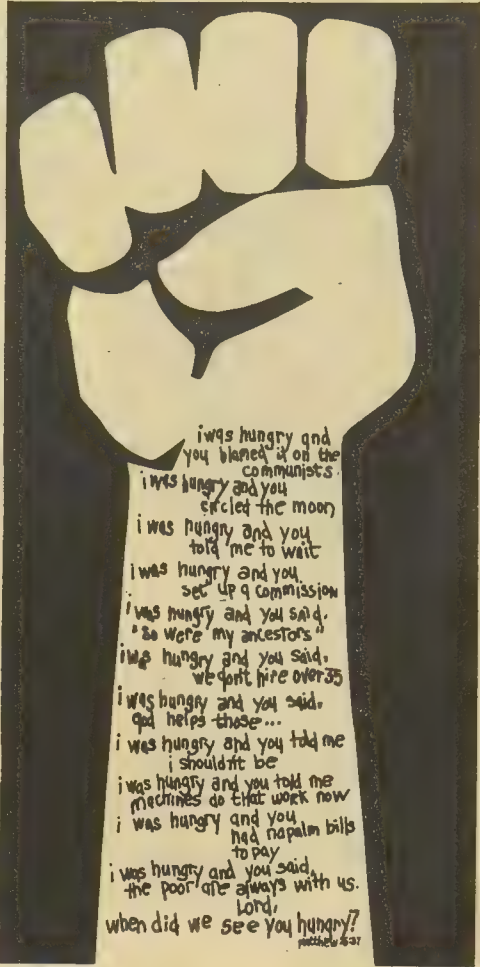 i was hungry and
you blamed it on the
communists
i was hungry and you
circled the moon
i was hungry and you
told me to wait
i was hungry and you
set up a commission
i was hungry and you said,
"so were my ancestors"
i was hungry and you said,
we don't hire over 35
i was hungry and you said,
god helps those...
i was hungry and you told me
i shouldn't be
i was hungry and you told me
machines do that work now
i was hungry and you
had napalm bills
to pay
i was hungry and you said,
the poor are always with us.
Lord,
when did we see you hungry?
matthew 25:37